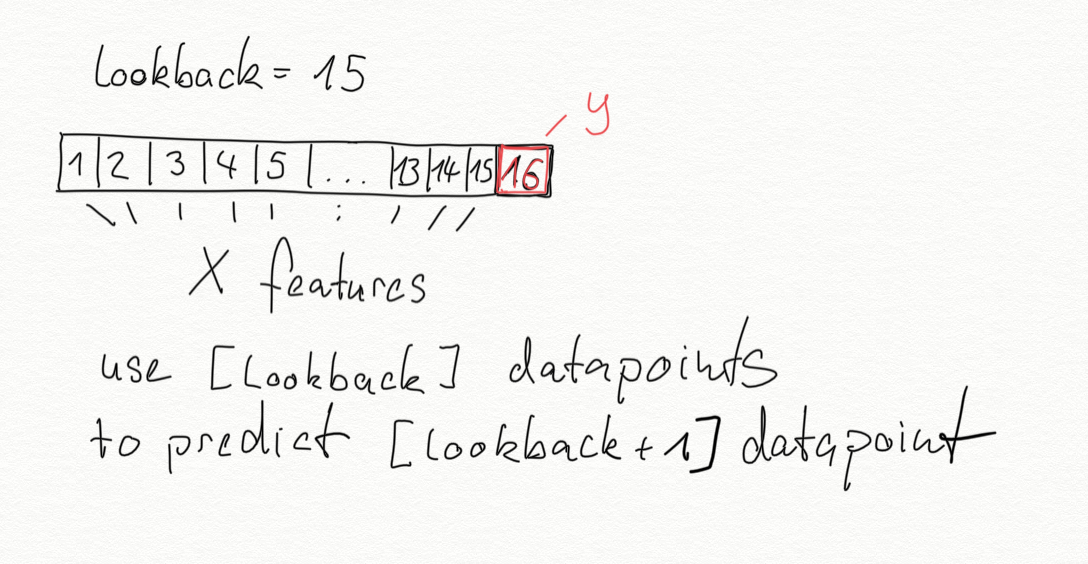 Lookback = 15
y
1 2 3 4 5 ... 13 14 15 16
X features
use [Lookback] datapoints
to predict [Lookback + 1] datapoint